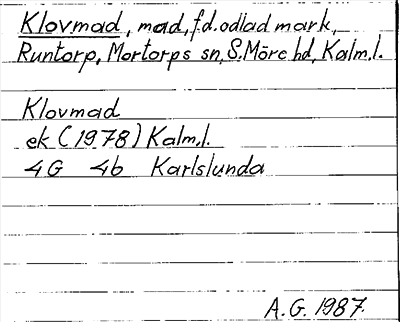 Klovmad, mad, f.d. odlad mark,
Runtorp, Mortorps sn, S. Möre hd, Kalm.l.
Klovmad
ek (1978) Kalm.l.
4G 4b Karlslunda
A.G. 1987.